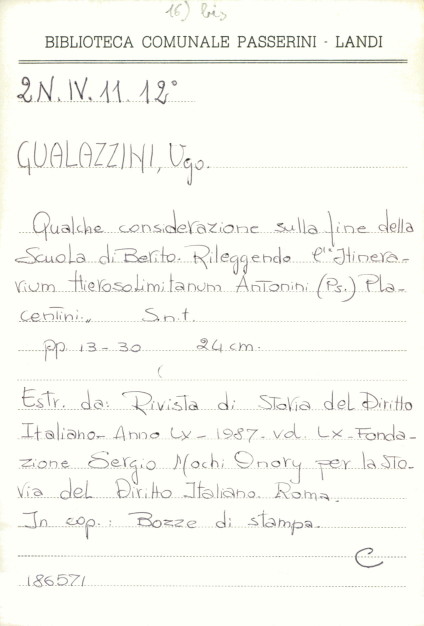 16) bis
BIBLIOTECA COMUNALE PASSERINI - LANDI
2N. IV. 11. 12°
GUALAZZINI, Ugo.
Qualche considerazione sulla fine della
Scuola di Berito. Rileggendo l'"Itinera-
rium Hierosolimitanum Antonini (Ps.) Pla-
centini". S.n.t.
pp. 13-30 24 cm.
Estr. da: Rivista di Storia del Diritto
Italiano - Anno LX - 1987. vol. LX - Fonda-
zione Sergio Mochi Onory per la sto-
ria del Diritto Italiano. Roma.
In cop.: Bozze di stampa.
C
186571